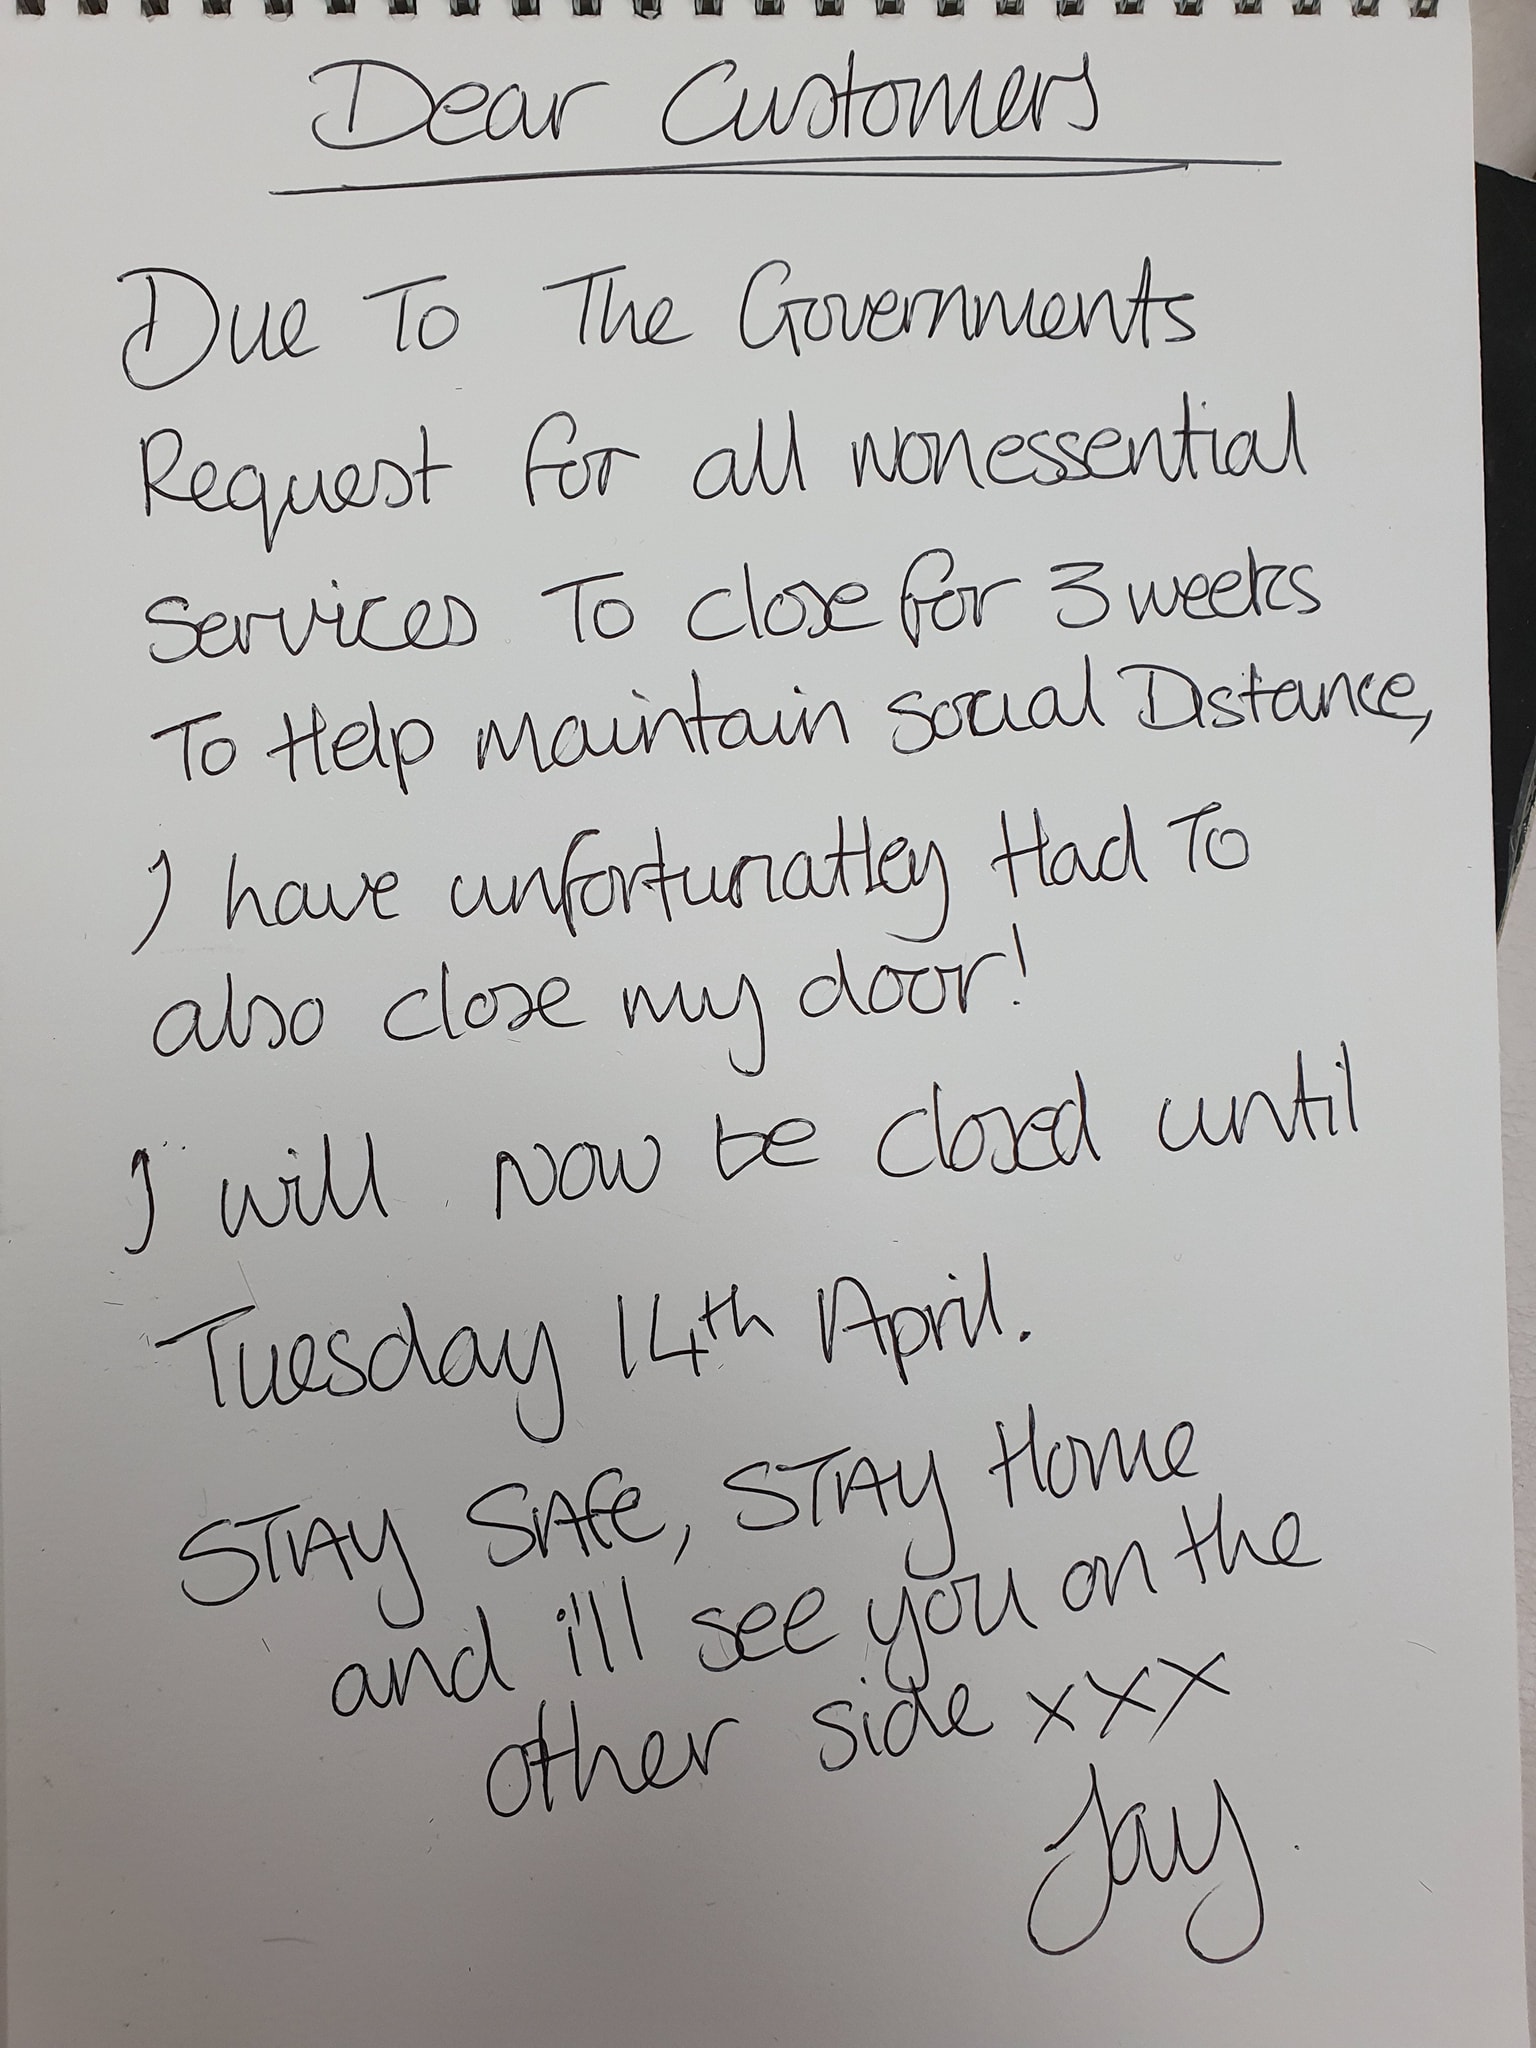 Dear Customers
Due To The Governments
Request for all nonessential
Services To close for 3 weeks
To Help maintain social Distance,
I have unfortunatley Had To
also close my door!
I will now be closed until
Tuesday 14th April.
STAY SAFe, STAY Home
and i'll see you on the
other side xxx
Jay.